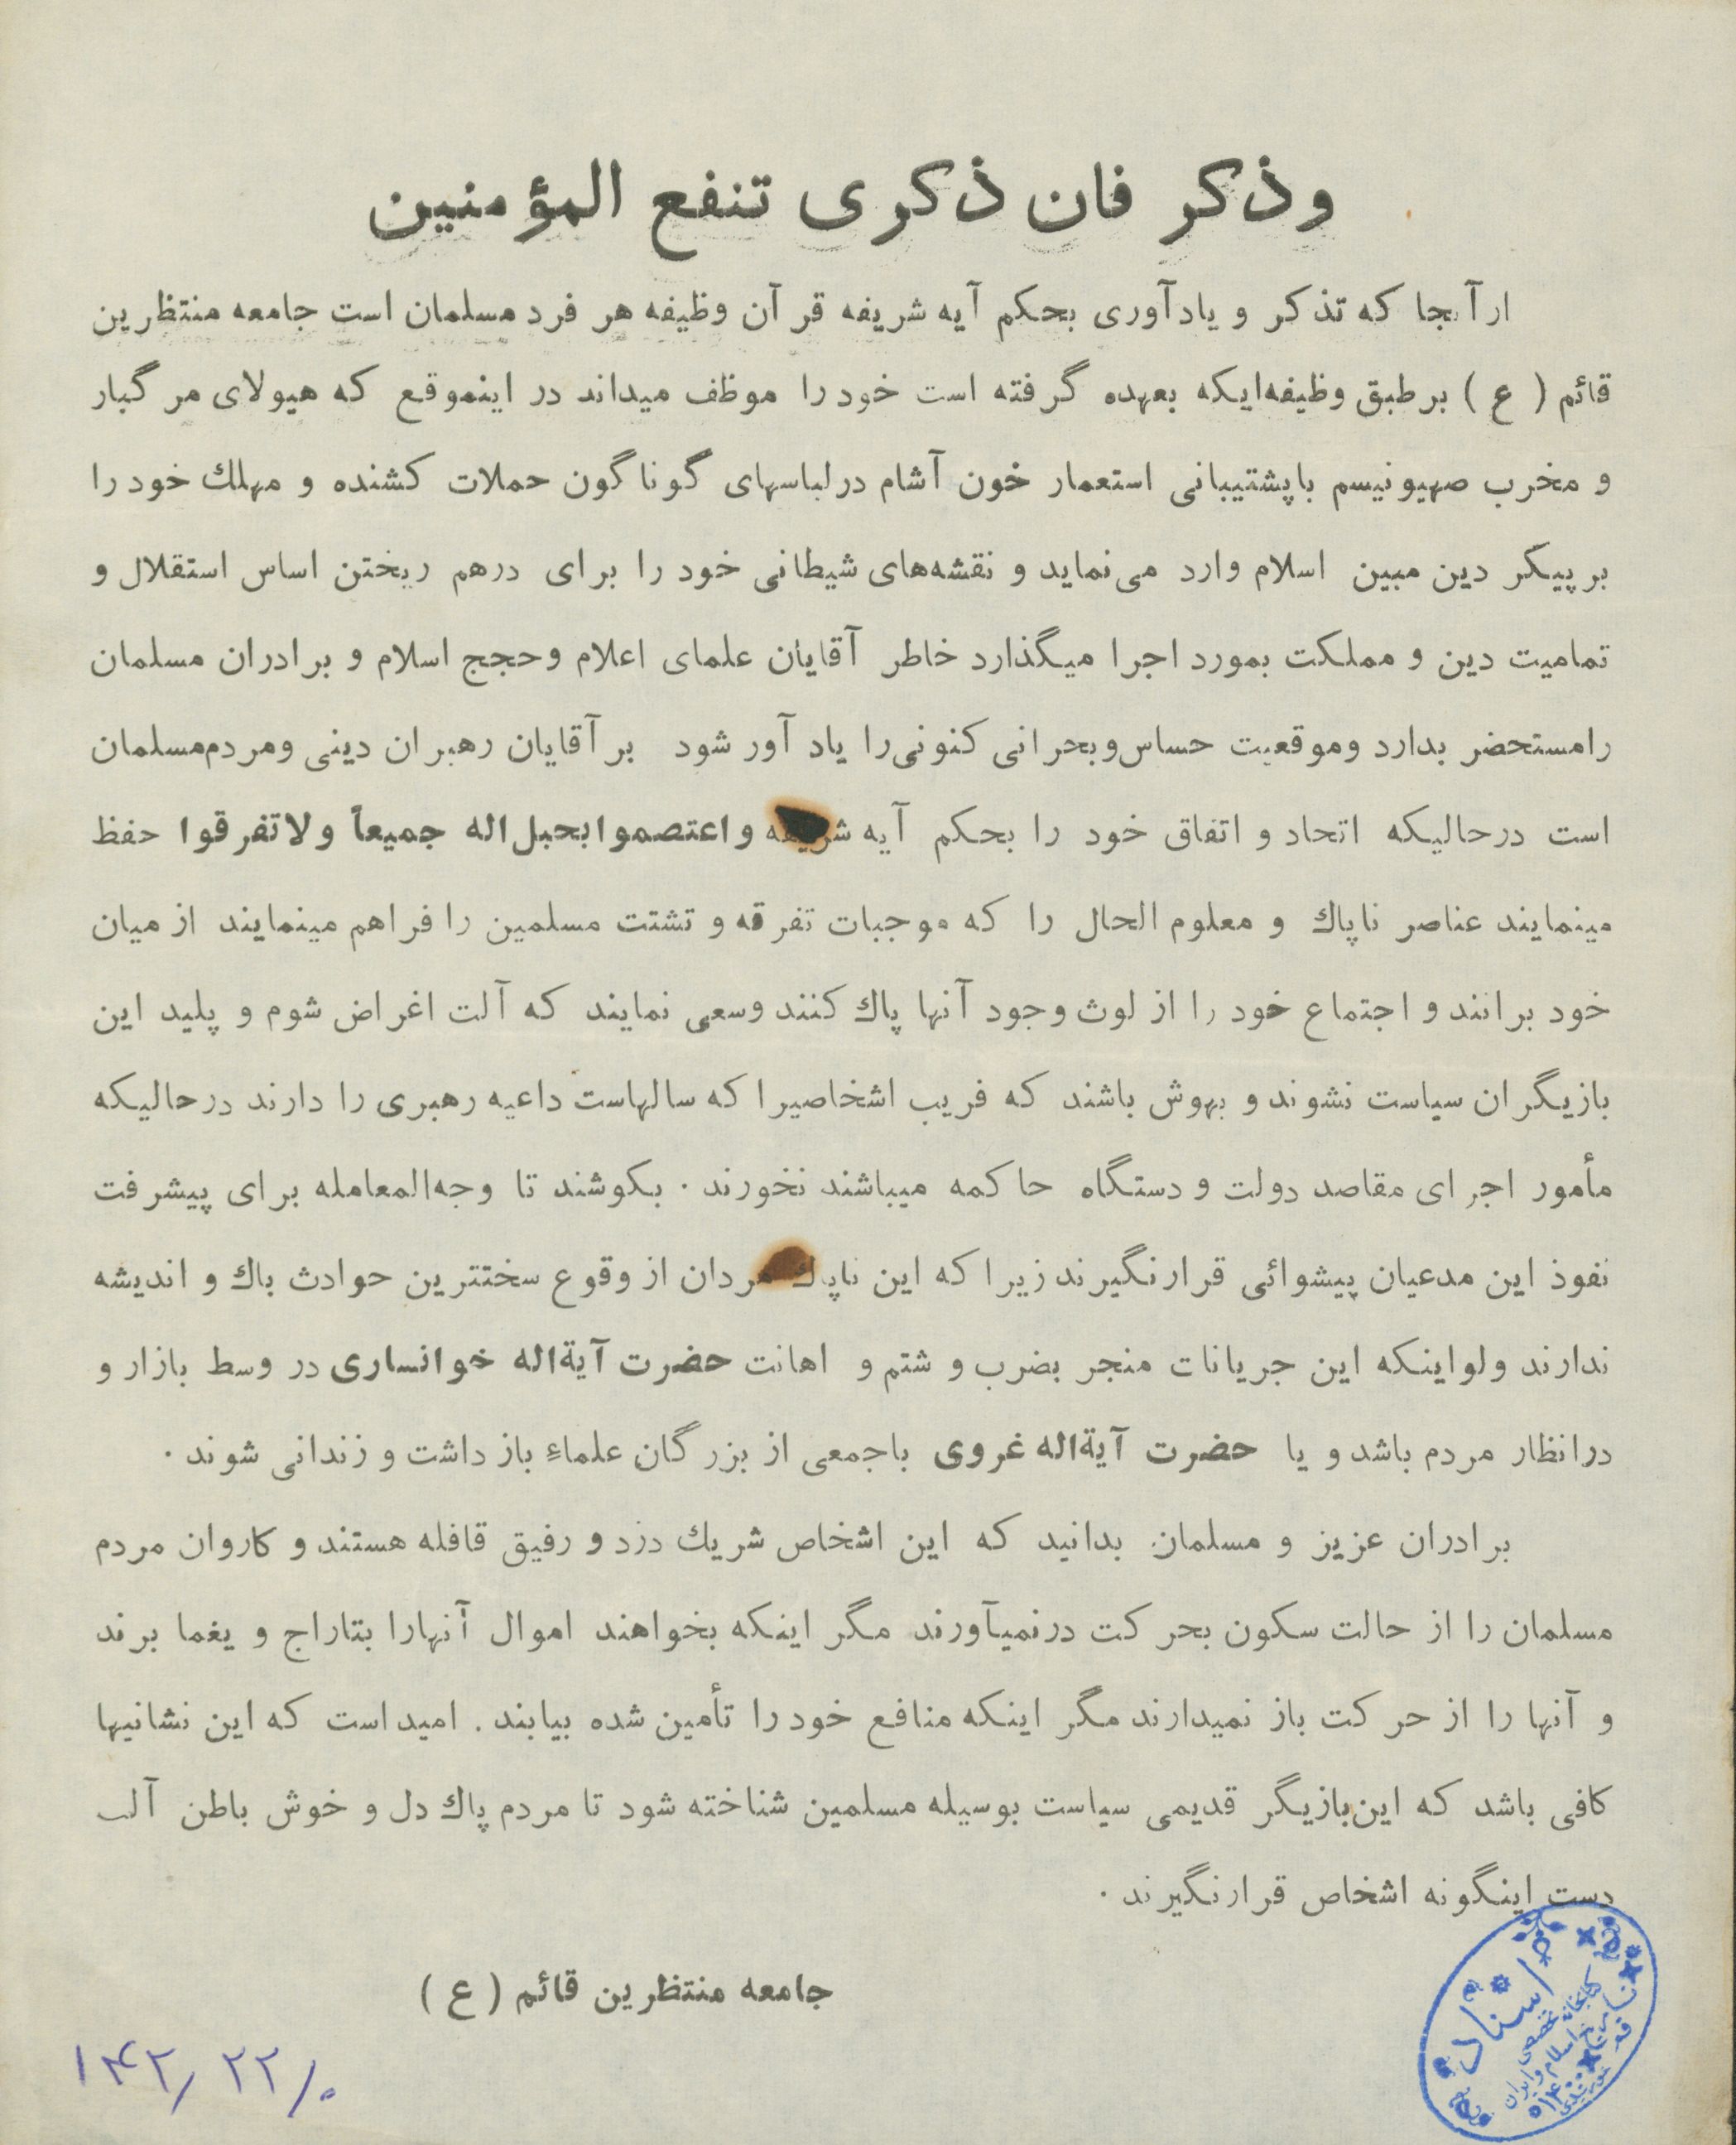 وذکر فان ذکری تنفع المؤمنین
ازآنجا که تذکر و یادآوری بحکم آیه شریفه قرآن وظیفه هر فرد مسلمان است جامعه منتظرین
قائم ( ع ) برطبق وظیفه‌ایکه بعهده گرفته است خود را موظف میداند در اینموقع که هیولای مرگبار
و مخرب صهیونیسم باپشتیبانی استعمار خون آشام درلباسهای گوناگون حملات کشنده و مهلك خود را
بر پیکر دین مبین اسلام وارد می‌نماید و نقشه‌های شیطانی خود را برای درهم ریختن اساس استقلال و
تمامیت دین و مملکت بمورد اجرا میگذارد خاطر آقایان علمای اعلام وحجج اسلام و برادران مسلمان
رامستحضر بدارد وموقعیت حساس‌وبحرانی کنونی‌را یاد آور شود بر آقایان رهبران دینی ومردم‌مسلمان
است درحالیکه اتحاد و اتفاق خود را بحکم آیه شریفه واعتصموا بحبل‌اله جمیعاً ولاتفرقوا حفظ
مینمایند عناصر ناپاك و معلوم الحال را که موجبات تفرقه و تشتت مسلمین را فراهم مینمایند از میان
خود برانند و اجتماع خود را از لوث وجود آنها پاك کنند وسعی نمایند که آلت اغراض شوم و پلید این
بازیگران سیاست نشوند و بهوش باشند که فریب اشخاصیرا که سالهاست داعیه رهبری را دارند درحالیکه
مأمور اجرای مقاصد دولت و دستگاه حاکمه میباشند نخورند . بکوشند تا وجه‌المعامله برای پیشرفت
نفوذ این مدعیان پیشوائی قرارنگیرند زیرا که این ناپاك مردان از وقوع سختترین حوادث باك و اندیشه
ندارند ولواینکه این جریانات منجر بضرب و شتم و اهانت حضرت آیةاله خوانساری در وسط بازار و
درانظار مردم باشد و یا حضرت آیةاله غروی باجمعی از بزرگان علماء بازداشت و زندانی شوند .
برادران عزیز و مسلمان بدانید که این اشخاص شریك دزد و رفیق قافله هستند و کاروان مردم
مسلمان را از حالت سکون بحرکت درنمیآورند مگر اینکه بخواهند اموال آنهارا بتاراج و یغما برند
و آنها را از حرکت باز نمیدارند مگر اینکه منافع خود را تأمین شده بیابند . امید است که این نشانیها
کافی باشد که این‌بازیگر قدیمی سیاست بوسیله مسلمین شناخته شود تا مردم پاك دل و خوش باطن آلت
دست اینگونه اشخاص قرارنگیرند .
جامعه منتظرین قائم ( ع )
اسناد
کتابخانه تخصصی
تاریخ اسلام و ایران
۱۴۲٫ ۲۲/۰